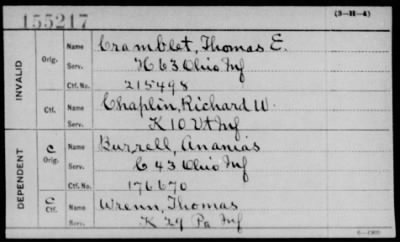 155217
(3-H-4)
INVALID
Orig.
Name Cramblet, Thomas E.
Serv. H 63 Ohio Inf
Ctf. No. 215498
Ctf.
Name Chaplin, Richard W.
Serv. K 10 Vt Inf
DEPENDENT
C
Orig.
Name Burrell, Ananias
Serv. C 43 Ohio Inf
Ctf. No. 176670
C
Ctf.
Name Wrenn, Thomas
Serv. K 29 Pa Inf